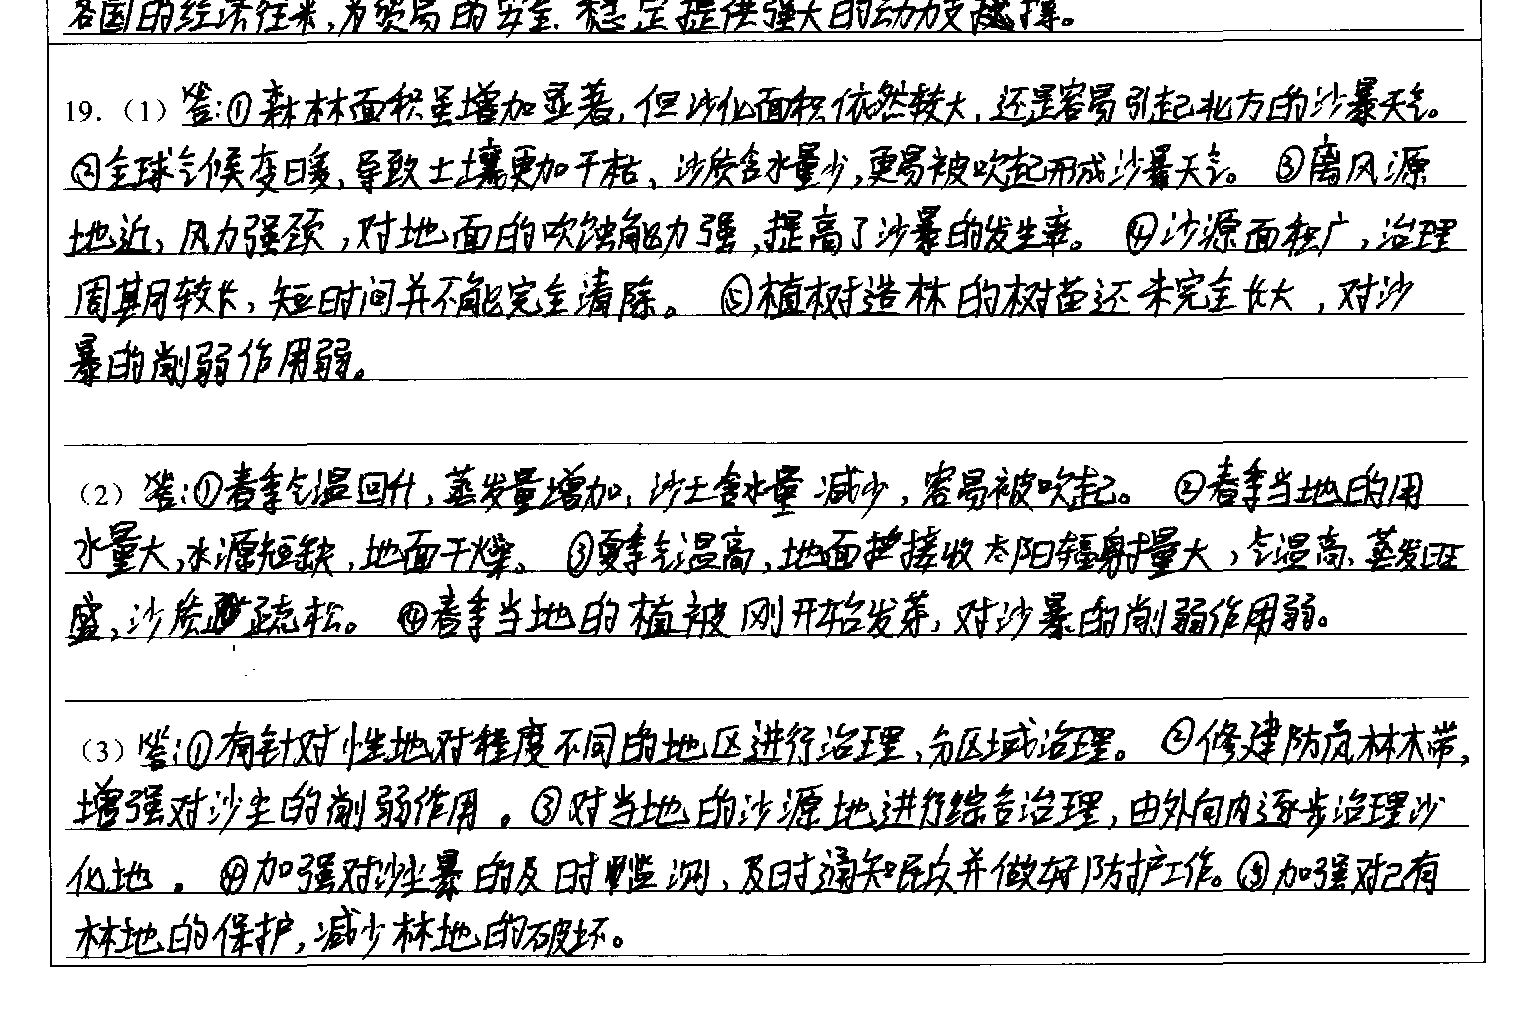 各国的经济往来,为贸易的安全、稳定提供强大的动力支撑。
19.（1）答:①森林面积虽增加显著,但沙化面积依然较大,还是容易引起北方的沙暴天气。
②全球气候变暖,导致土壤更加干枯、沙质含水量少,更易被吹起形成沙暴天气。 ③离风源
地近,风力强颈,对地面的吹蚀能力强,提高了沙暴的发生率。 ④沙源面积广,治理
周期较长,短时间并不能完全清除。 ⑤植树造林的树苗还未完全长大,对沙
暴的削弱作用弱。
（2）答:①春季气温回升,蒸发量增加,沙土含水量减少,容易被吹起。 ②春季当地的用
水量大,水源短缺,地面干燥。 ③夏季气温高,地面接收太阳辐射量大,气温高、蒸发旺
盛,沙质疏松。 ④春季当地的植被刚开始发芽,对沙暴的削弱作用弱。
（3）答:①有针对性地对程度不同的地区进行治理,分区域治理。 ②修建防风林木带,
增强对沙尘的削弱作用。③对当地的沙源地进行综合治理,由外向内逐步治理沙
化地。 ④加强对沙尘暴的及时监测,及时通知民众并做好防护工作。⑤加强对已有
林地的保护,减少林地的破坏。